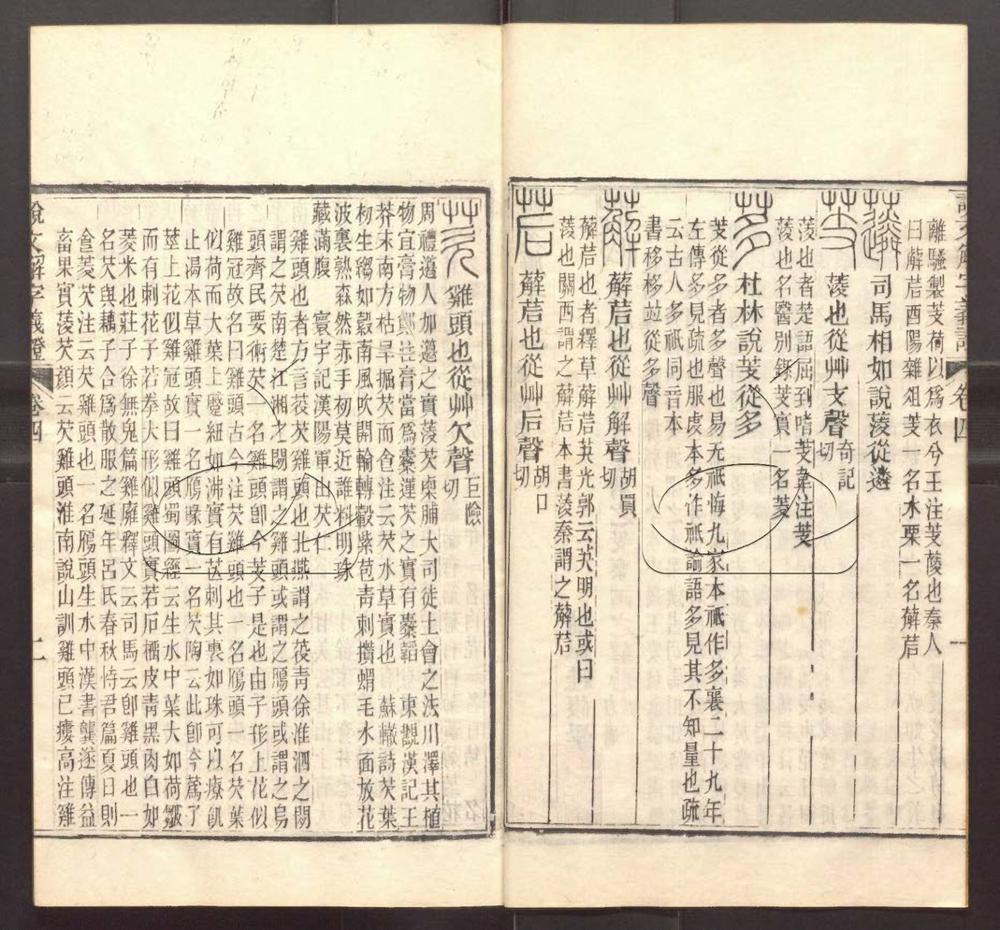 離騷製芰荷以爲衣兮王注芰蔆也秦人
曰薢茩酉陽雜俎芰一名木栗一名薢茩
蘧司馬相如說蔆從遴
芰蔆也從艸支聲奇記切
蔆也者楚語屈到嗜芰韋注芰
蔆也名醫別錄芰實一名菱
茤杜林說芰從多
芰從多者多聲也易无祇悔九家本祇作多襄二十九年
左傳多見疏也服虔本多作祇論語多見其不知量也疏
云古人多祇同音本
書移栘竝從多聲
薢薢茩也從艸解聲胡買切
薢茩也者釋草薢茩芵光郭云芵明也或曰
蔆也關西謂之薢茩本書蔆秦謂之薢茩
茩薢茩也從艸后聲胡口切
芡雞頭也從艸欠聲巨險切
周禮籩人加籩之實蔆芡㮚脯大司徒土會之法川澤其植
物宜膏物鄭注膏當爲櫜蓮芡之實有櫜韜 東觀漢記王
莽末南方枯旱掘芡而食注云芡水草實也 蘇轍詩芡葉
初生縐如縠南風吹開輪轉轂紫苞青刺攢蝟毛水面放花
波裏熟森然赤手初莫近誰料明珠
藏滿腹 寰宇記漢陽軍出芡仁
雞頭也者方言䓈芡雞頭也北燕謂之䓈青徐淮泗之閒
謂之芡南楚江湘之閒謂之雞頭或謂之鴈頭或謂之烏
頭齊民要術芡一名雞頭卽今芰子是也由子形上花似
雞冠故名曰雞頭古今注芡雞頭也一名鴈頭一名芡葉
似荷而大葉上蹙紐如沸實有芒刺其裏如珠可以療飢
止渴本草雞頭實一名鴈喙實一名芡陶云此卽今蔿子
莖上花似雞冠故曰雞頭蜀圖經云生水中葉大如荷皺
而有刺花子若拳大形似雞頭實若石榴皮青黑肉白如
菱米也莊子徐無鬼篇雞廱釋文云司馬云卽雞頭也一
名芡與藕子合爲散服之延年呂氏春秋恃君篇夏日則
食菱芡注云芡雞頭也一名鴈頭生水中漢書龔遂傳益
畜果實蔆芡顏云芡雞頭淮南說山訓雞頭已瘻高注雞
說文解字義證 卷四